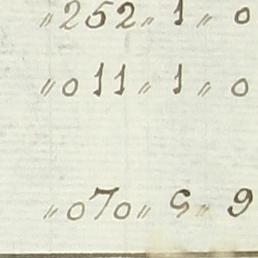 〃252〃1〃0
〃011〃1〃0
〃070〃5〃9